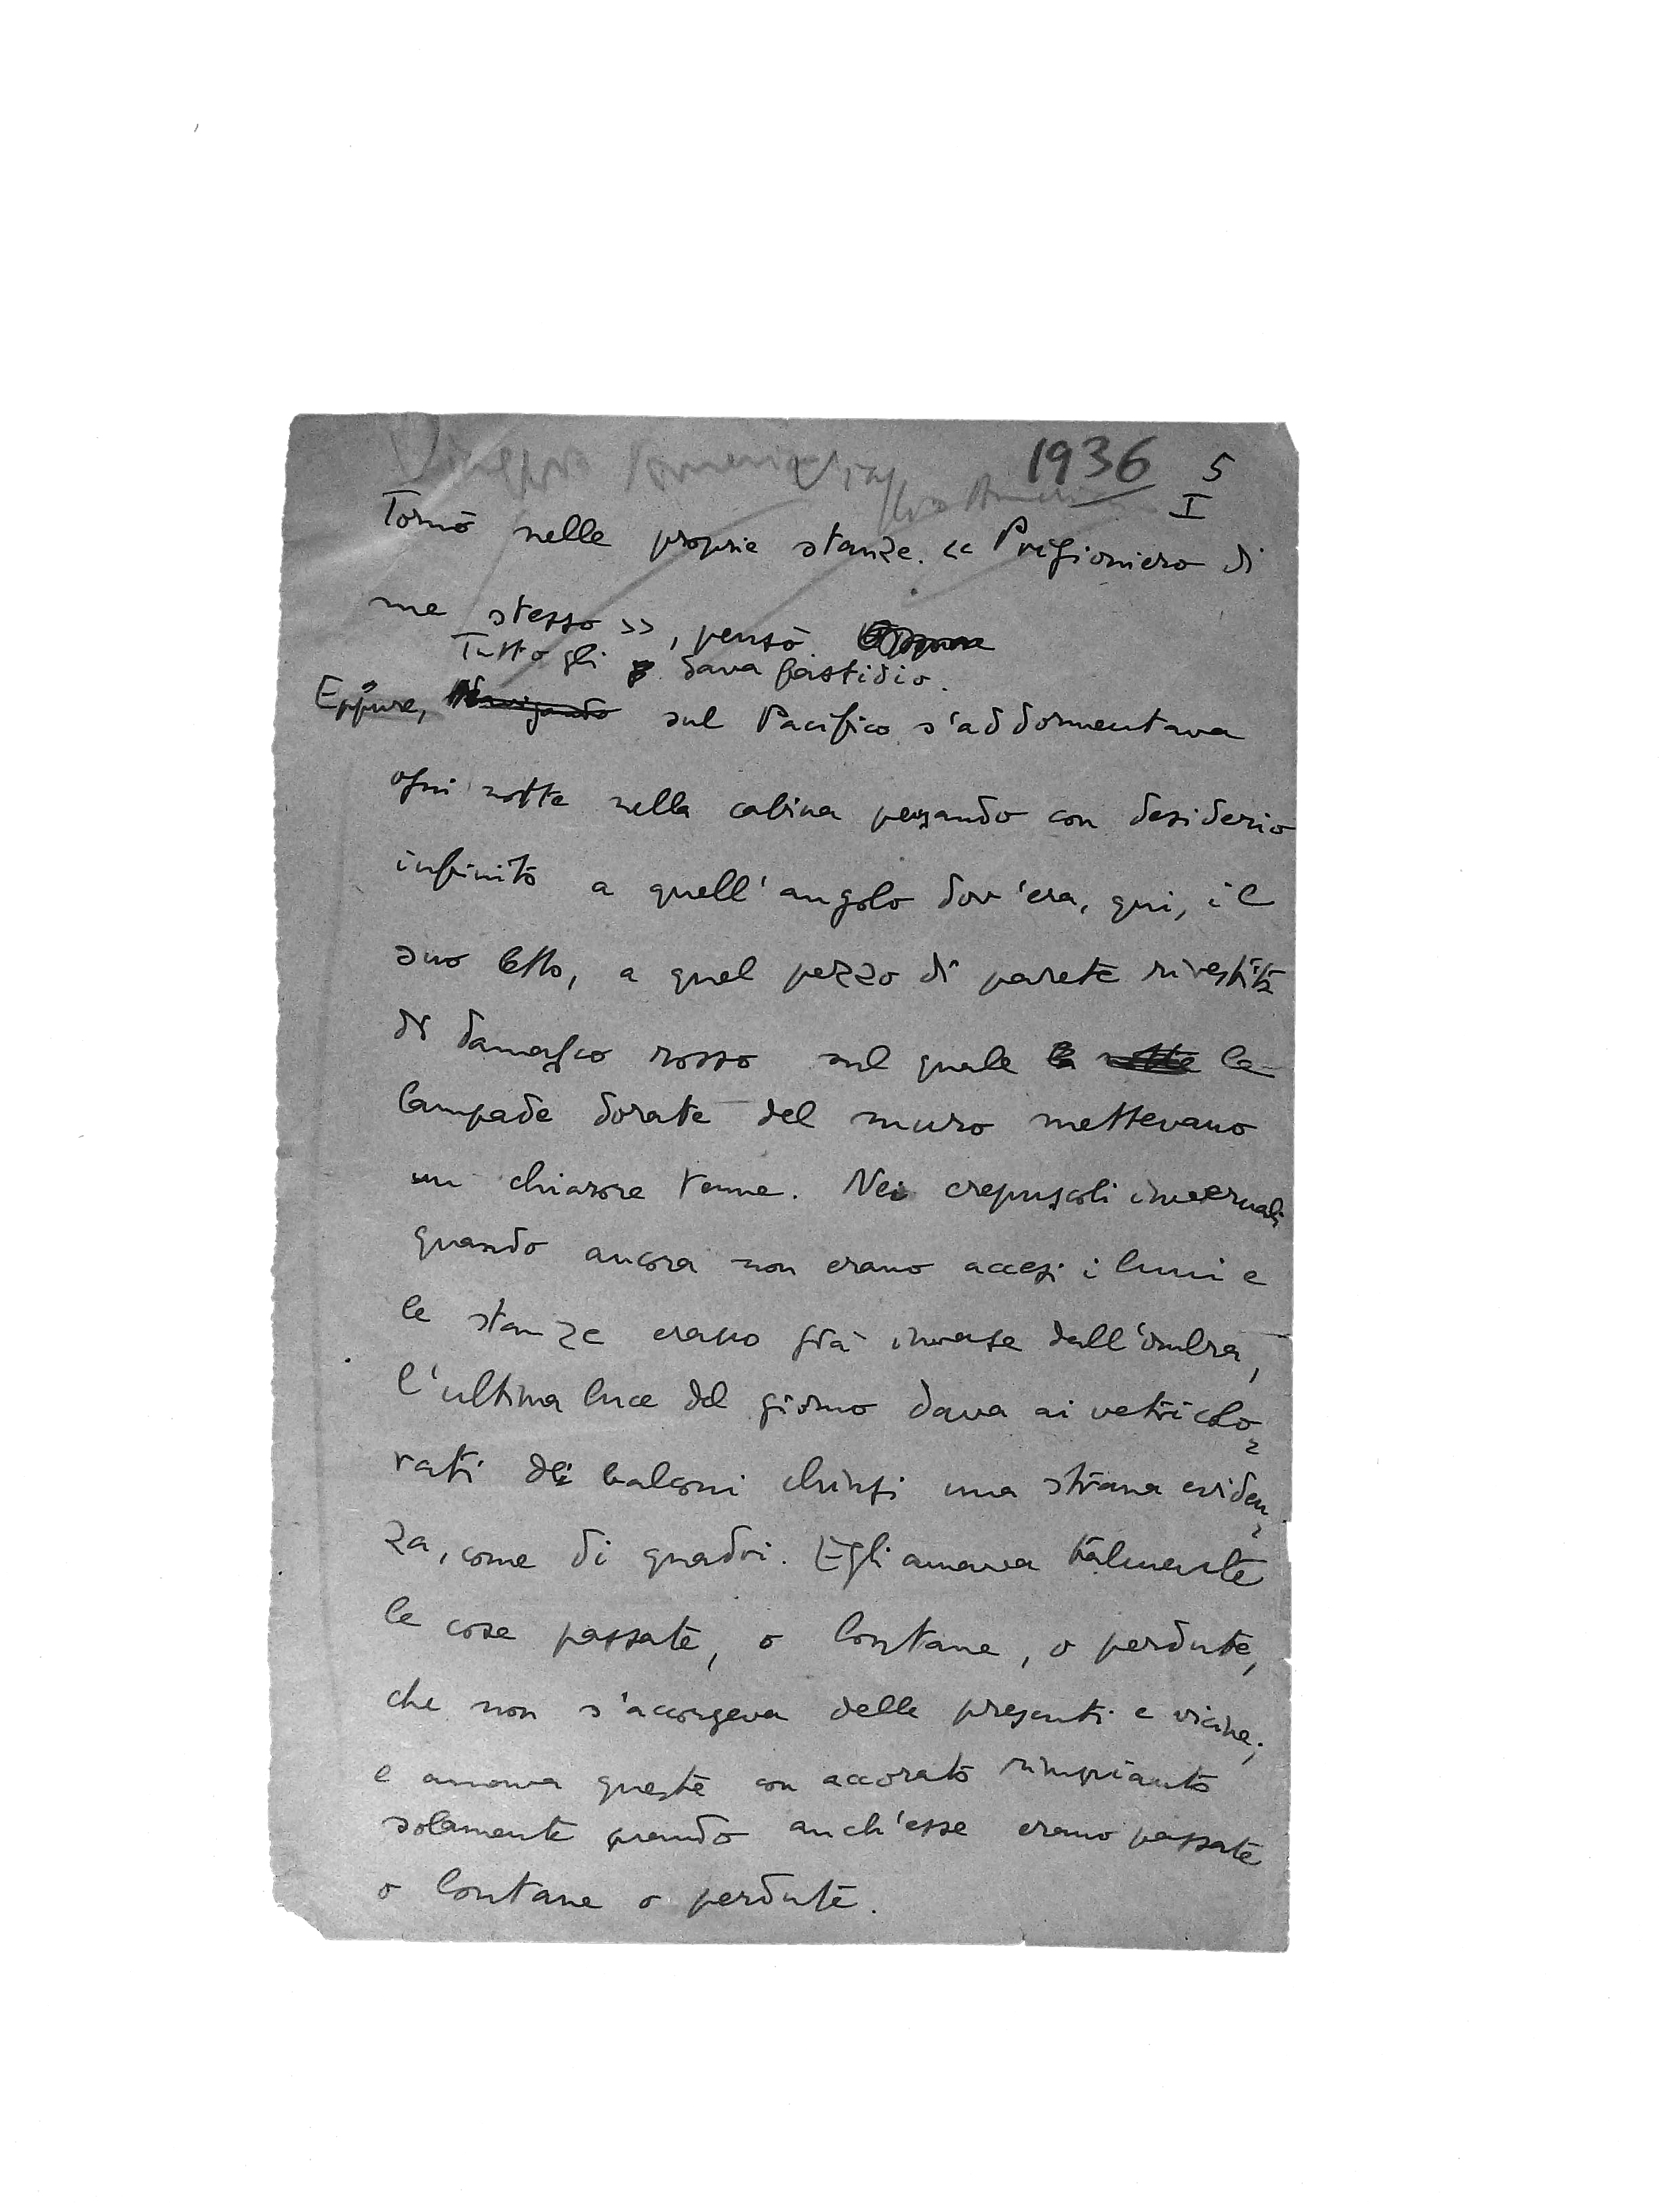 1936 5
I
Tornò nelle proprie stanze. << Prigioniero di
me stesso >>, pensò. Eppure
Tutto gli dava fastidio.
Eppure, Navigando sul Pacifico s'addormentava
ogni notte nella cabina pensando con desiderio
infinito a quell'angolo dov'era, qui, il
suo letto, a quel pezzo di parete rivestita
di damasco rosso sul quale la notte le
lampade dorate del muro mettevano
un chiarore tenue. Nei crepuscoli invernali
quando ancora non erano accesi i lumi e
le stanze erano già invase dall'ombra,
l'ultima luce del giorno dava ai vetri colo-
rati dei balconi chiusi una strana eviden-
za, come di quadri. Egli amava talmente
le cose passate, o lontane, o perdute,
che non s'accorgeva delle presenti e vicine;
e amava queste con accorato rimpianto
solamente quando anch'esse erano passate
o lontane o perdute.